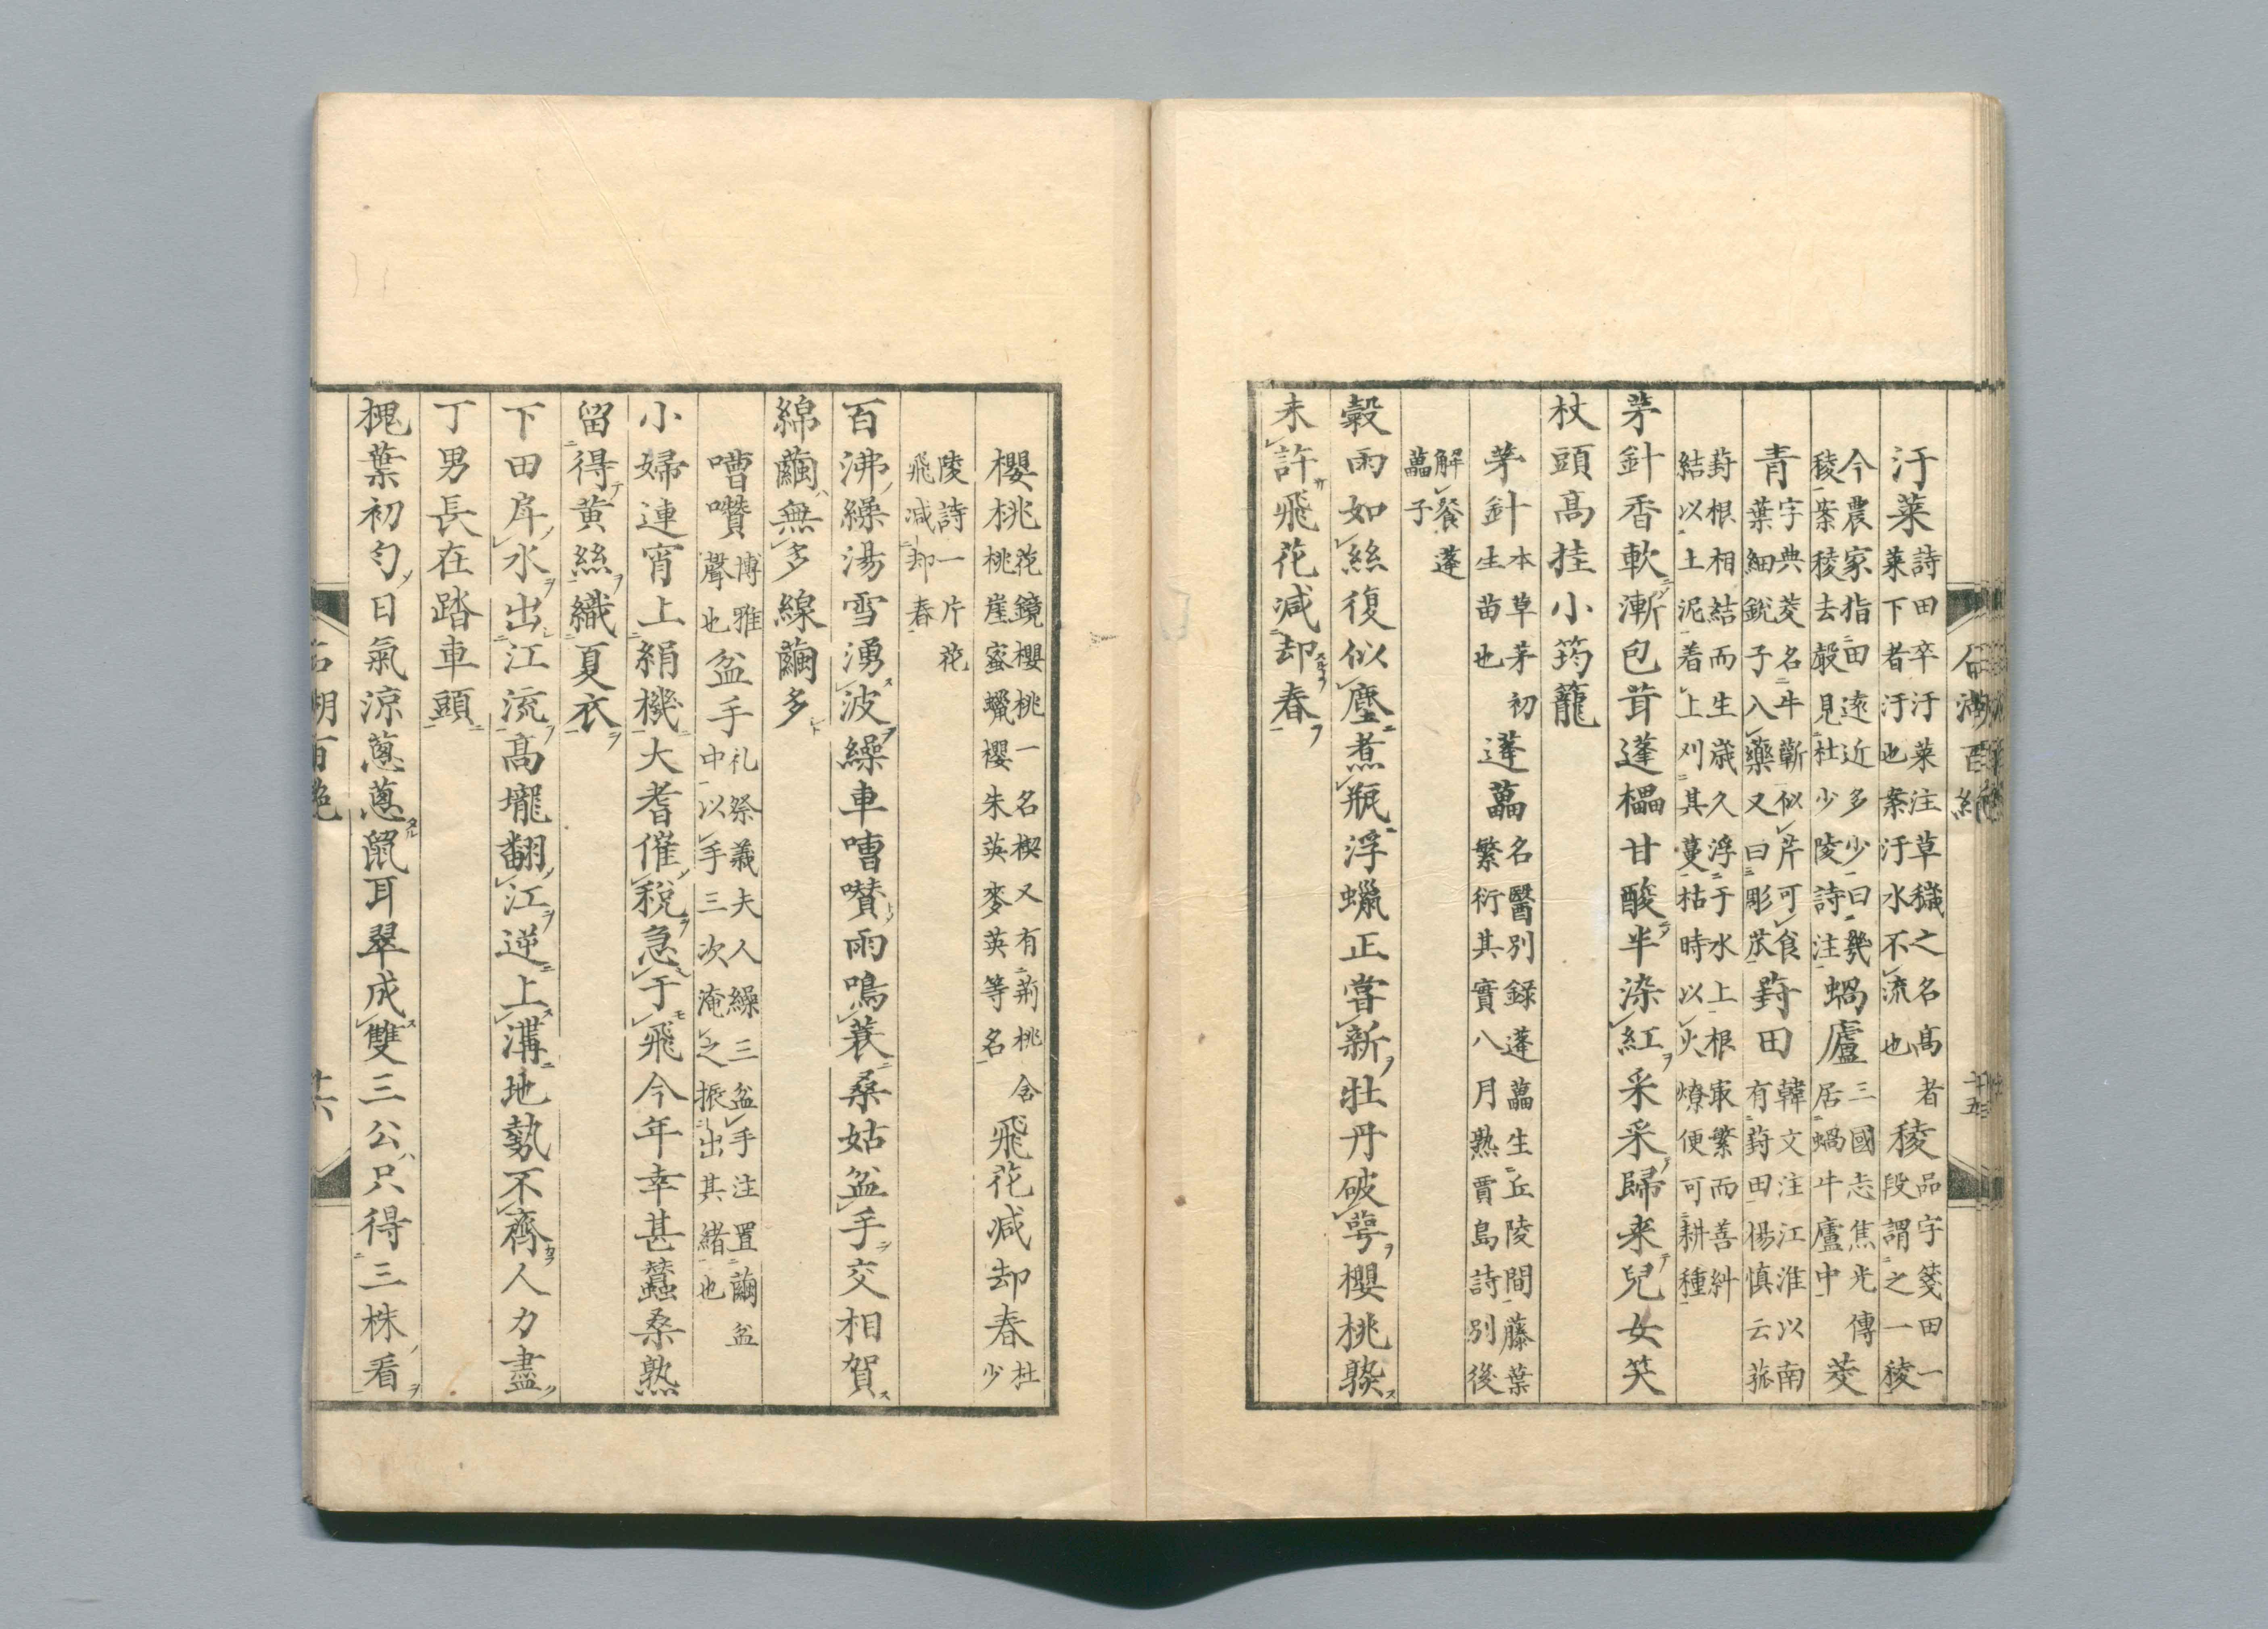 石湖百絶 十五
汙莱 詩田卒汙莱注草穢之名高者 莱下者汙也案汙水不流也 稜 品字箋田一 段謂之一稜
今農家指田遠近多少曰幾 稜案稜去聲見杜少陵詩注 蝸廬 三國志焦光傳 居蝸牛廬中 菱
青 字典菱名牛蘄似芹可食 葉細銳子入藥又曰彫苽 葑田 韓文注江淮以南 有葑田楊慎云菰
葑根相結而生歳久浮于水上根最繁而善糾 結以土泥着上刈其蔓枯時以火燎便可耕種
茅針香軟漸包茸蓬櫑甘酸半染紅采采歸来兒女笑
杖頭高挂小筠籠
茅針 本草茅初 生苗也 蓬藟 名醫別録蓬藟生丘陵間藤葉 繁衍其實八月熟賈島詩別後
解餐蓬 藟子
穀雨如絲復似塵煮瓶浮蝋正嘗新牡丹破萼櫻桃熟
未許飛花減却春
櫻桃 花鏡櫻桃一名楔又有荊桃含 桃崖蜜蝋櫻朱英麥英等名 飛花減却春 杜 少
陵詩一片花 飛減却春
百沸繰湯雪湧波繰車嘈囋雨鳴蓑桑姑盆手交相賀
綿繭無多線繭多
嘈囋 博雅 聲也 盆手 礼祭義夫人繰三盆手注置繭盆 中以手三次淹之振出其緒也
小婦連宵上絹機大耆催税急于飛今年幸甚蠶桑熟
留得黄絲織夏衣
下田戽水出江流高壠翻江逆上溝地勢不齊人力盡
丁男長在踏車頭
槐葉初勻日氣涼蔥蔥鼠耳翠成雙三公只得三株看
石湖百絶 十六